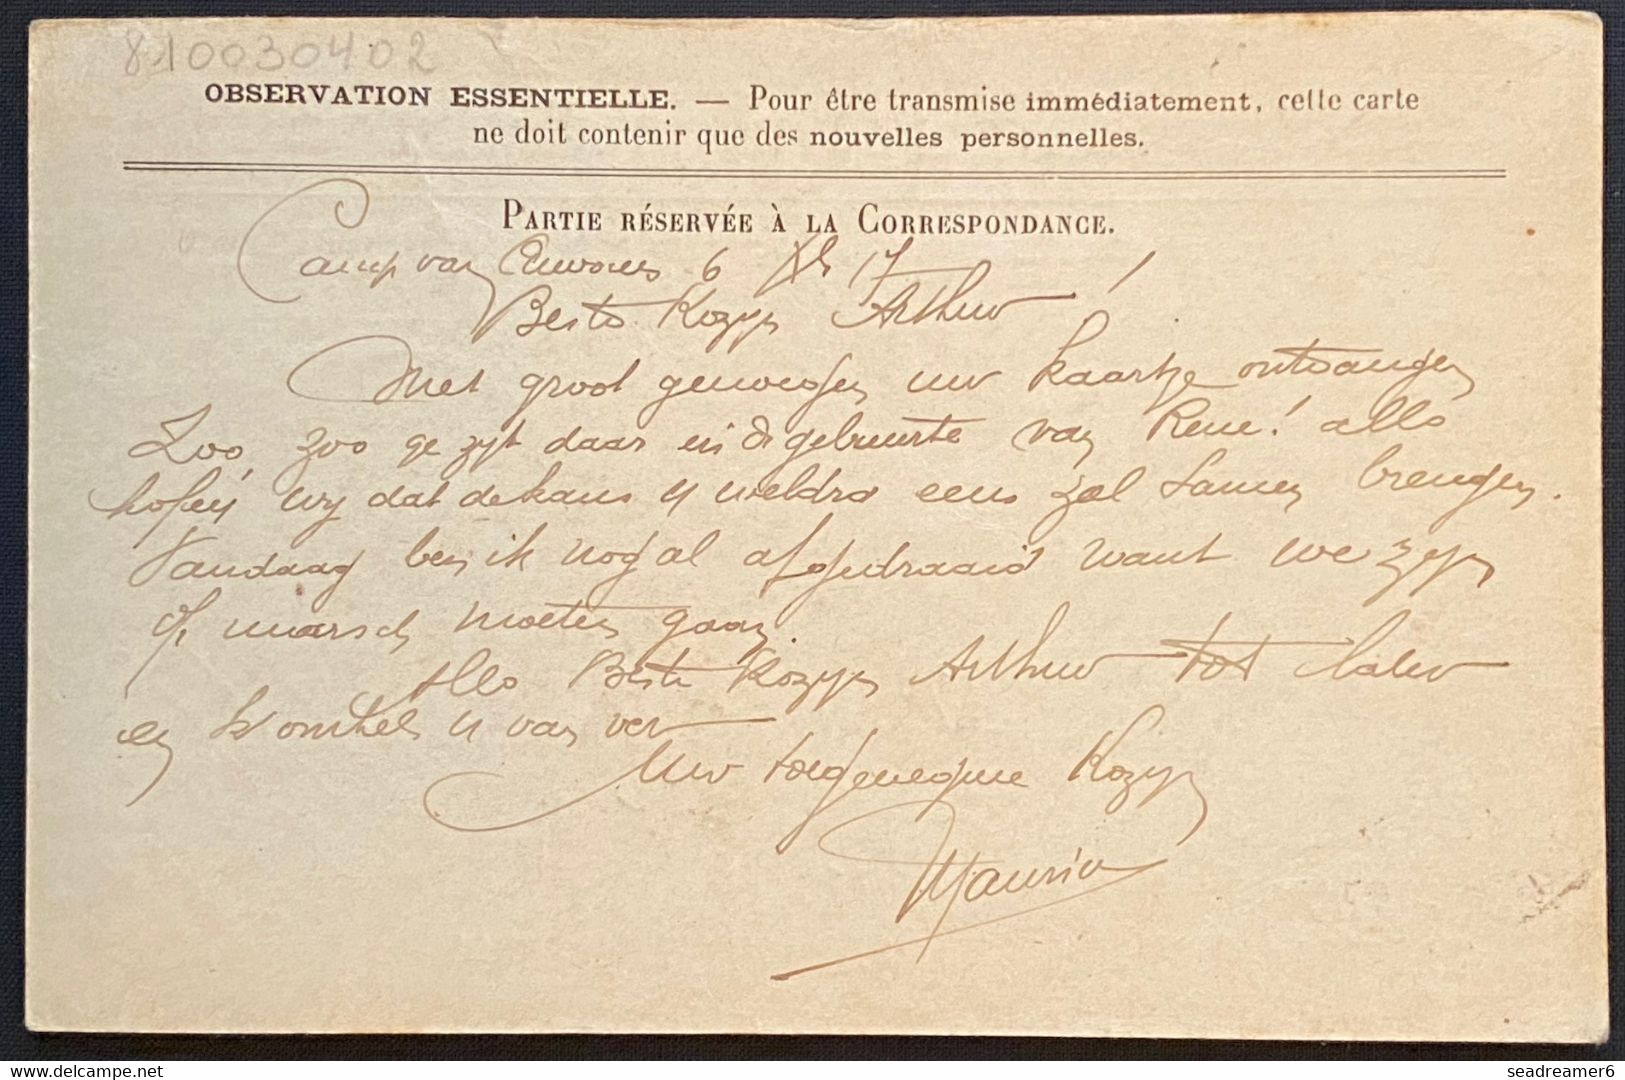 8100030402
OBSERVATION ESSENTIELLE. — Pour être transmise immédiatement, cette carte
ne doit contenir que des nouvelles personnelles.
PARTIE RÉSERVÉE À LA CORRESPONDANCE.
Camp van Auvours 6 Xbr 17
Beste Kozyn Arthur !
Met groot genoegen uw kaartje ontvangen
Zoo zoo ge zyt daar in de gebuurte van René! allo
hopen wy dat de kans u weldra eens zal samen brengen.
Vandaag ben ik nog al afgedraaid want we zyn
op marsch moeten gaan.
Allo Beste Kozyn Arthur tot later
en k'omhels u van ver
Uw toegenegene Kozyn
Maurice
© delcampe.net
seadreamer6